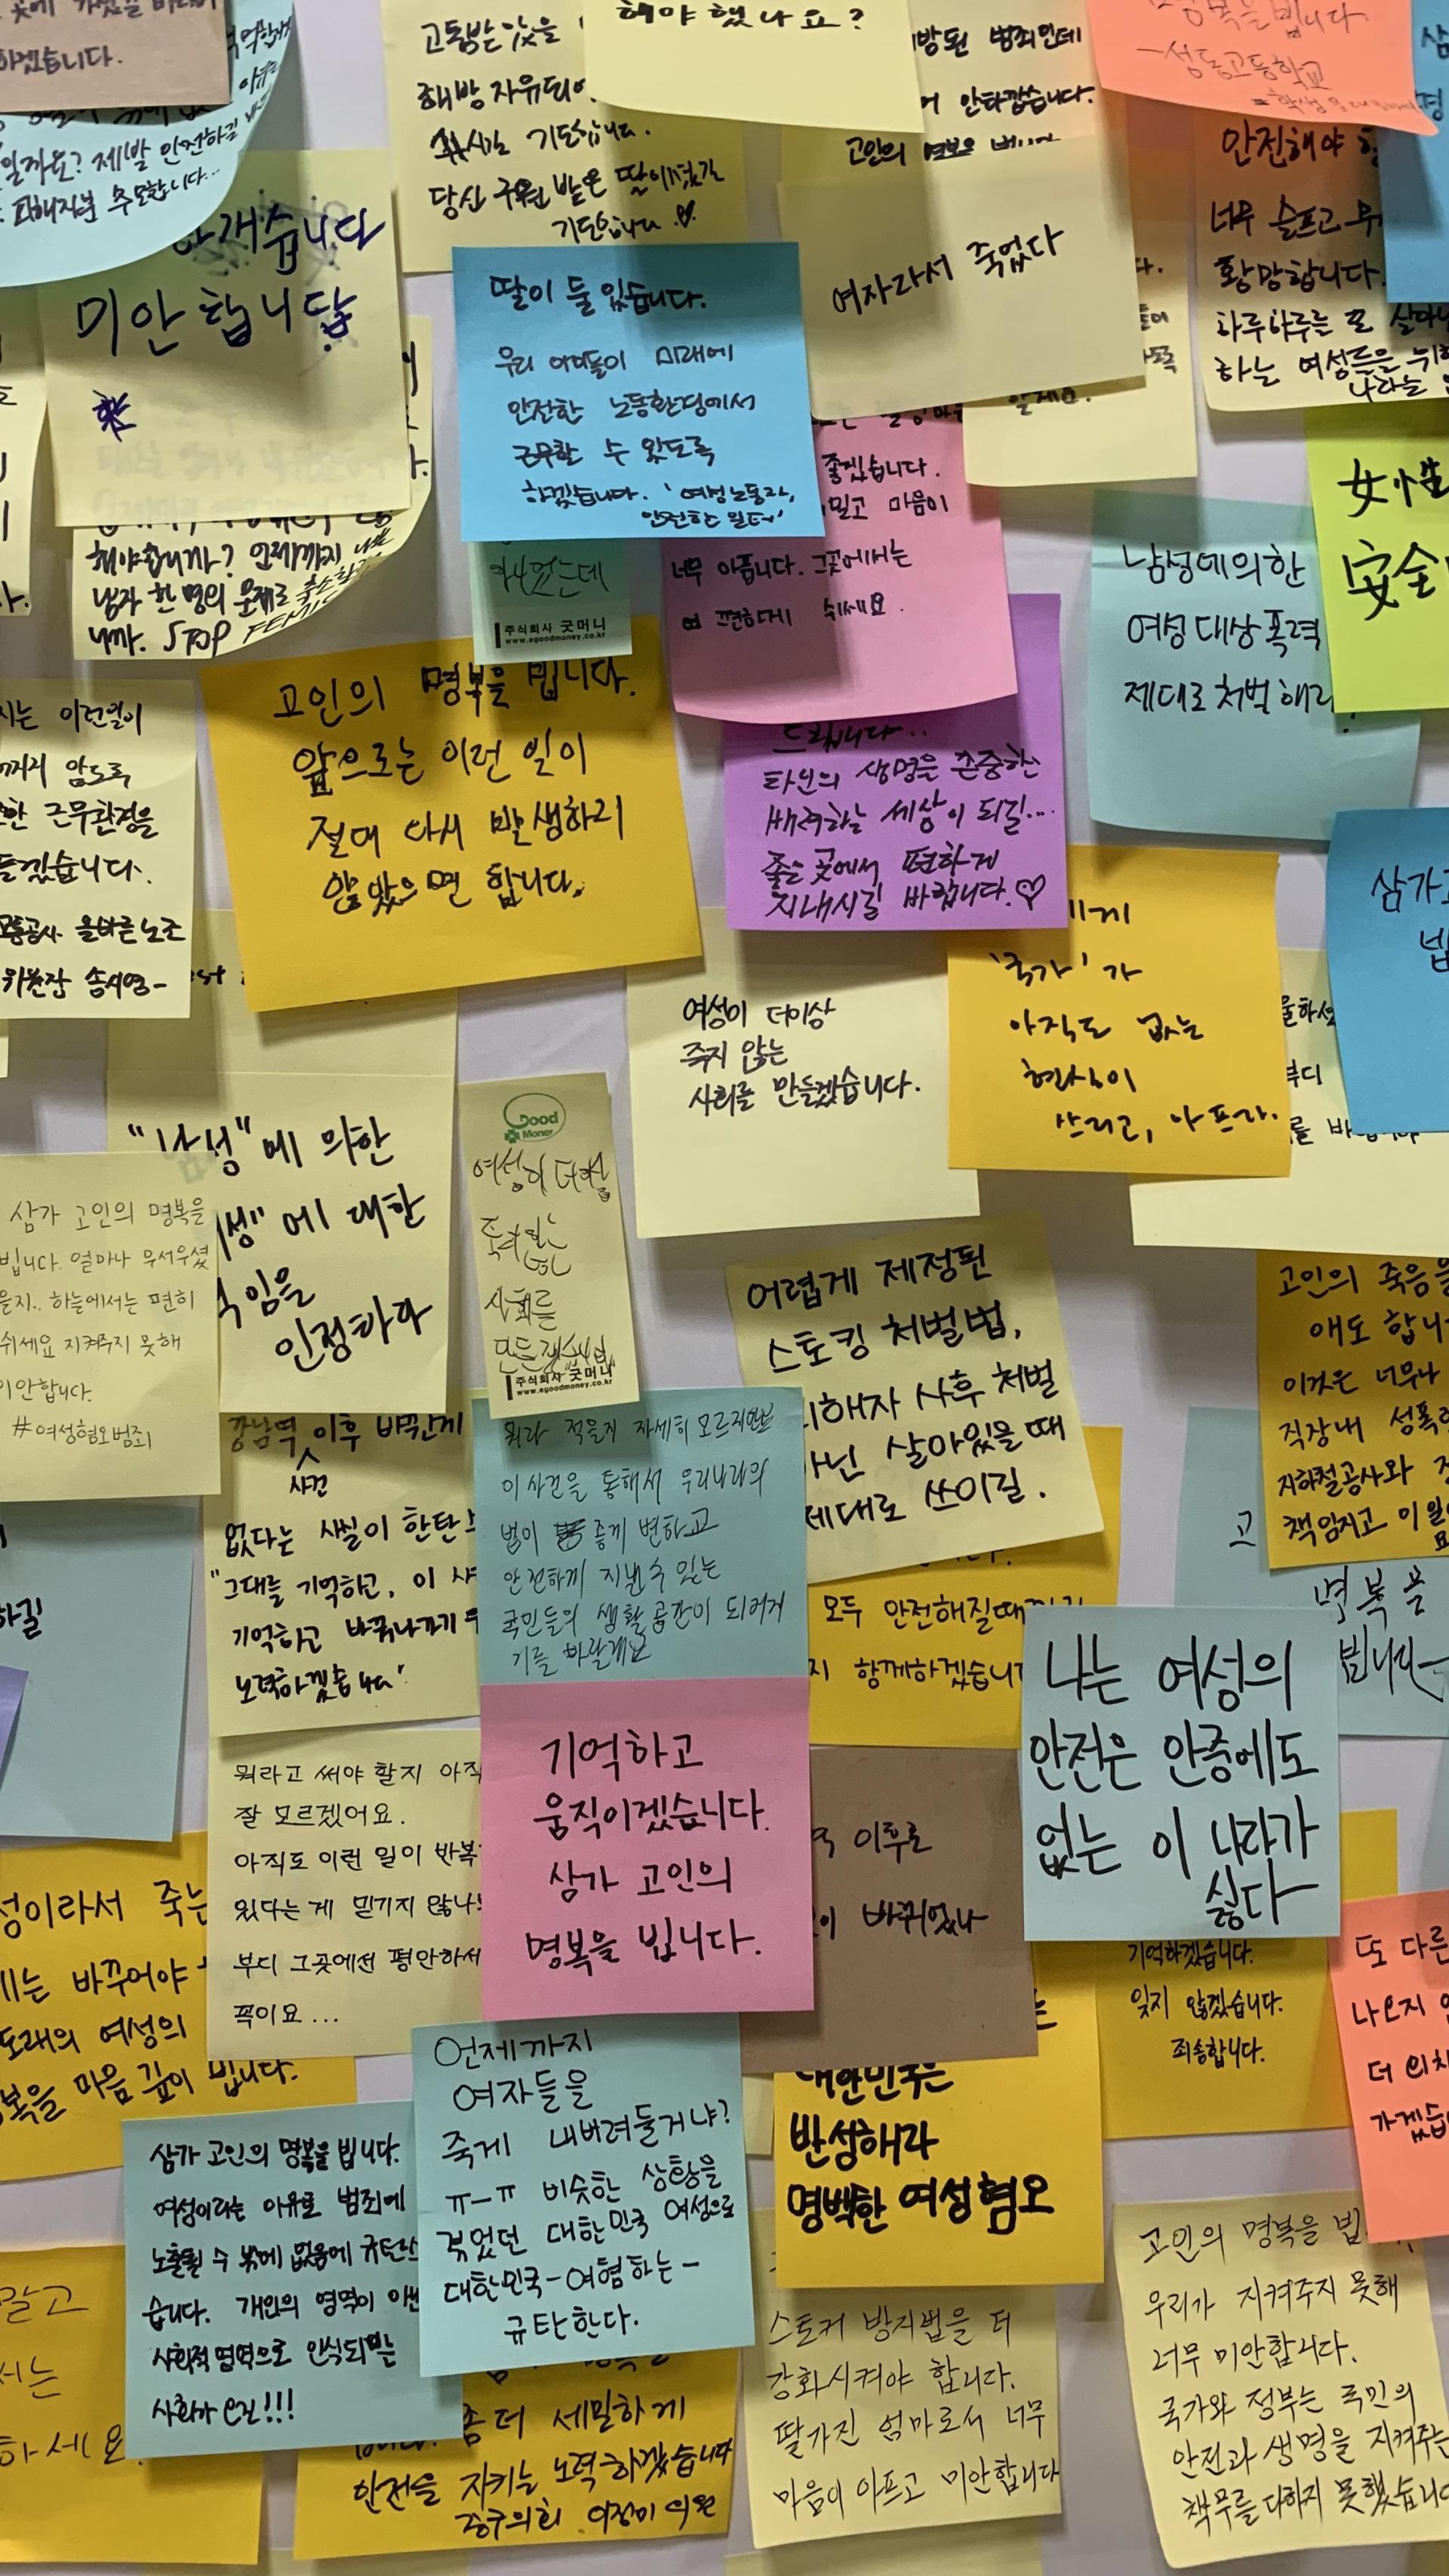 하겠습니다.
제발 안전하길
피해자분 추모합니다...
미안합니다
해야합니까? 언제까지
남자 한 명의 문제로
니까. STOP FEMI
해방 자유되어
기도합니다.
당신 구원 받은 딸이셨길
기도합니다
해야 했나요?
범죄인데
안타깝습니다.
고인의 명복을 빕니다
여자라서 죽었다
명복을 빕니다
-성동고등학교
안전해야
너무 슬프고
황망합니다.
하루하루를
하는 여성들을
나라는
딸이 둘 있습니다.
우리 아이들이 미래에
안전한 노동환경에서
근무할 수 있도록
하겠습니다. '여성노동자,
안전한 일터'
주식회사 굿머니
www.egoodmoney.co.kr
좋겠습니다.
마음이
너무 아픕니다. 그곳에서는
편하게 쉬세요.
남성에의한
여성대상폭력
제대로 처벌해라
女性
安全
이런일이
않도록
근무환경을
올바른노조
위원장 송시영-
고인의 명복을 빕니다.
앞으로는 이런 일이
절대 다시 발생하지
않았으면 합니다.
드립니다..
타인의 생명을 존중한
배려하는 세상이 되길...
좋은 곳에서 편하게
지내시길 바랍니다.♡
여성이 더이상
죽지 않는
사회를 만들겠습니다.
'국가'가
아직도 없는
현실이
쓰리고, 아프다.
삼가
"남성"에 의한
"에 대한
인정하라
삼가 고인의 명복을
빕니다. 얼마나 무서우셨
을지.. 하늘에서는 편히
쉬세요 지켜주지 못해
미안합니다.
#여성혐오범죄
Good
Money
여성이 더이상
사회를
만들겠습니다
주식회사 굿머니
www.egoodmoney.co.kr
어렵게 제정된
스토킹 처벌법,
피해자 사후 처벌
아닌 살아있을 때
제대로 쓰이길.
고인의 죽음을
애도 합니다
이것은 너무나
직장내
지하철공사와
책임지고
강남역 사건 이후 바뀐게
없다는 사실이 한탄
"그대를 기억하고, 이
기억하고 바꿔나가기
노력하겠습니다"
뭐라 적을지 자세히 모르지만
이 사건을 통해서 우리나라의
법이 좋게 변하고
안전하게 지낼수 있는
국민들의 생활공간이 되어주
기를 바랄게요
모두 안전해질때까지
함께하겠습니다
명복을
빕니다
나는 여성의
안전은 안중에도
없는 이 나라가
싫다
뭐라고 써야 할지 아직
잘 모르겠어요.
아직도 이런 일이 반복
있다는 게 믿기지 않네
부디 그곳에선 평안하세
꼭이요...
기억하고
움직이겠습니다.
삼가 고인의
명복을 빕니다.
이후로
바뀌었나
기억하겠습니다.
잊지 않겠습니다.
죄송합니다.
또 다른
나오지
더
성이라서 죽는
바꾸어야
또래의 여성의
명복을 마음 깊이 빕니다.
삼가 고인의 명복을 빕니다.
여성이라는 이유로 범죄에
노출될 수 밖에 없음에
습니다. 개인의 영역이
사회적 영역으로 인식되는
언제까지
여자들을
죽게 내버려둘거냐?
ㅠ-ㅠ 비슷한 상황을
겪었던 대한민국 여성으로
대한민국-여혐하는-
규탄한다.
대한민국은
반성해라
명백한 여성혐오
좀 더 세밀하게
안전을 지키는 노력하겠습니다
중구의회 이정미 의원
스토커 방지법을 더
강화시켜야 합니다.
딸가진 엄마로서 너무
마음이 아프고 미안합니다
고인의 명복을
우리가 지켜주지 못해
너무 미안합니다.
국가와 정부는 국민의
안전과 생명을 지켜주는
책무를 다하지 못했습니다